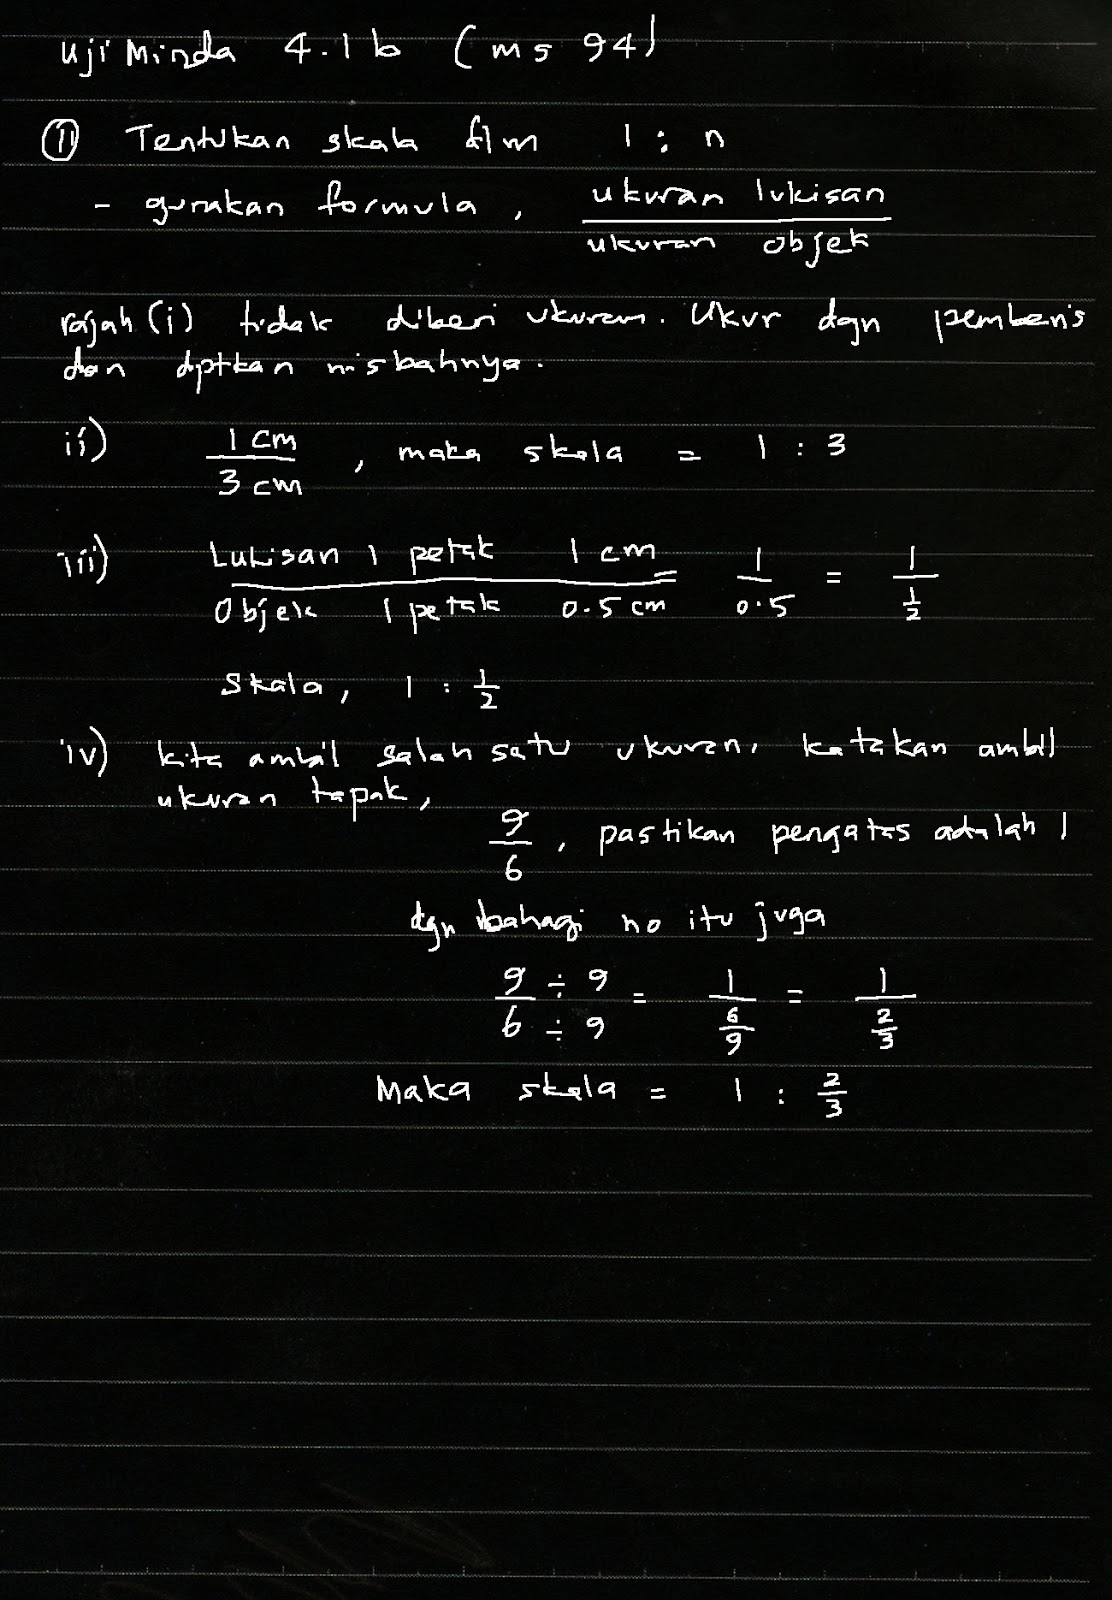 Uji Minda 4.1b (ms 94)
① Tentukan skala dlm 1 : n
- gunakan formula, ukuran lukisan / ukuran objek
rajah (i) tidak diberi ukuran. Ukur dgn pembaris
dan dptkan nisbahnya.
ii) 1 cm / 3 cm , maka skala = 1 : 3
iii) Lukisan 1 petak 1 cm / Objek 1 petak 0.5 cm = 1 / 0.5 = 1 / ½
Skala, 1 : ½
iv) kita ambil salah satu ukuran, katakan ambil
ukuran tapak,
9/6 , pastikan pengatas adalah 1
dgn bahagi no itu juga
9 ÷ 9 / 6 ÷ 9 = 1 / 6/9 = 1 / 2/3
Maka skala = 1 : 2/3